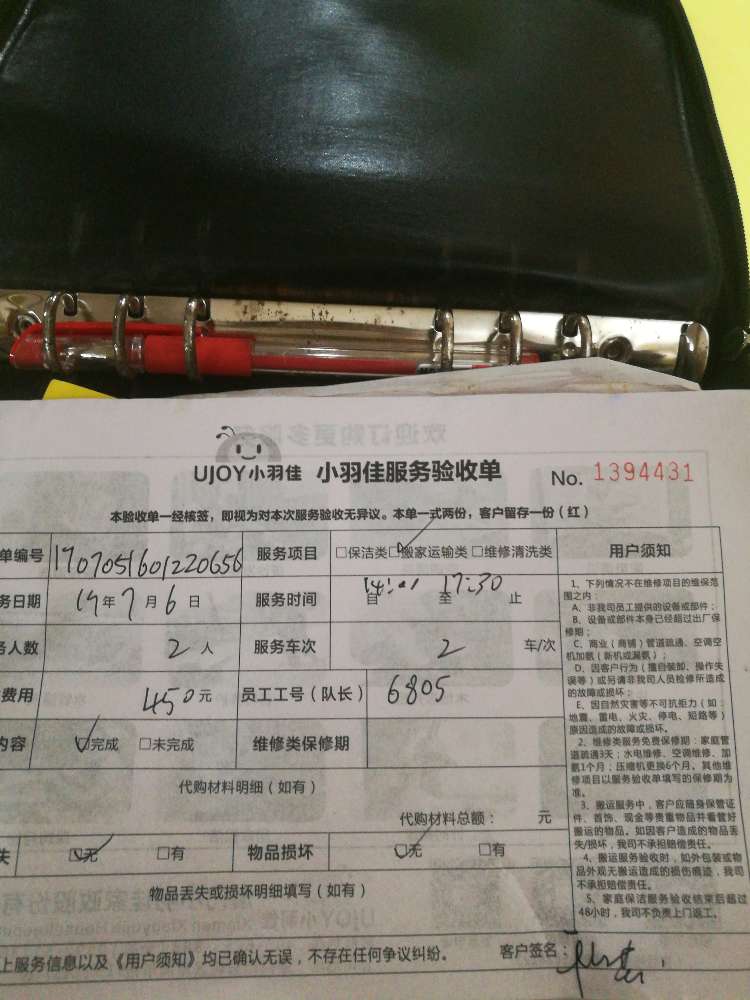 UJOY小羽佳 小羽佳服务验收单 No. 1394431
本验收单一经核签，即视为对本次服务验收无异议。本单一式两份，客户留存一份（红）
单编号 1707051601220656 服务项目 □保洁类 □搬家运输类 □维修清洗类 用户须知
务日期 17年7月6日 服务时间 14:00 自 至 17:30 止
务人数 2 人 服务车次 2 车/次
费用 450元 员工工号（队长） 6805
内容 □完成 □未完成 维修类保修期
代购材料明细（如有）
代购材料总额： 元
失 □无 □有 物品损坏 □无 □有
物品丢失或损坏明细填写（如有）
上服务信息以及《用户须知》均已确认无误，不存在任何争议纠纷。 客户签名：
1、下列情况不在维修项目的维保范
围之内：
A、非我司员工提供的设备或部件；
B、设备或部件本身已经超过出厂保
修期；
C、商业（商铺）管道疏通、空调空
机加氨（新机或漏氨）；
D、因客户行为（擅自装卸、操作失
误等）或另请非我司人员检修所造成
的故障或损坏；
E、因自然灾害等不可抗拒力（如：
地震、雷电、火灾、停电、短路等）
原因造成的故障或损坏。
2、维修类服务免费保修期：家庭管
道疏通3天；水电维修、空调维修、加
氨1个月；压缩机更换6个月。其他维
修项目以服务验收单填写的保修期为
准。
3、搬运服务中，客户应随身保管证
件、首饰、现金等贵重物品并看管好
搬运的物品。如因客户造成的物品丢
失/损坏，我司不承担赔偿责任。
4、搬运服务验收时，如外包装或物
品外观无搬运造成的损伤痕迹，我司
不承担赔偿责任。
5、家庭保洁服务验收结束后超过
48小时，我司不负责上门返工。